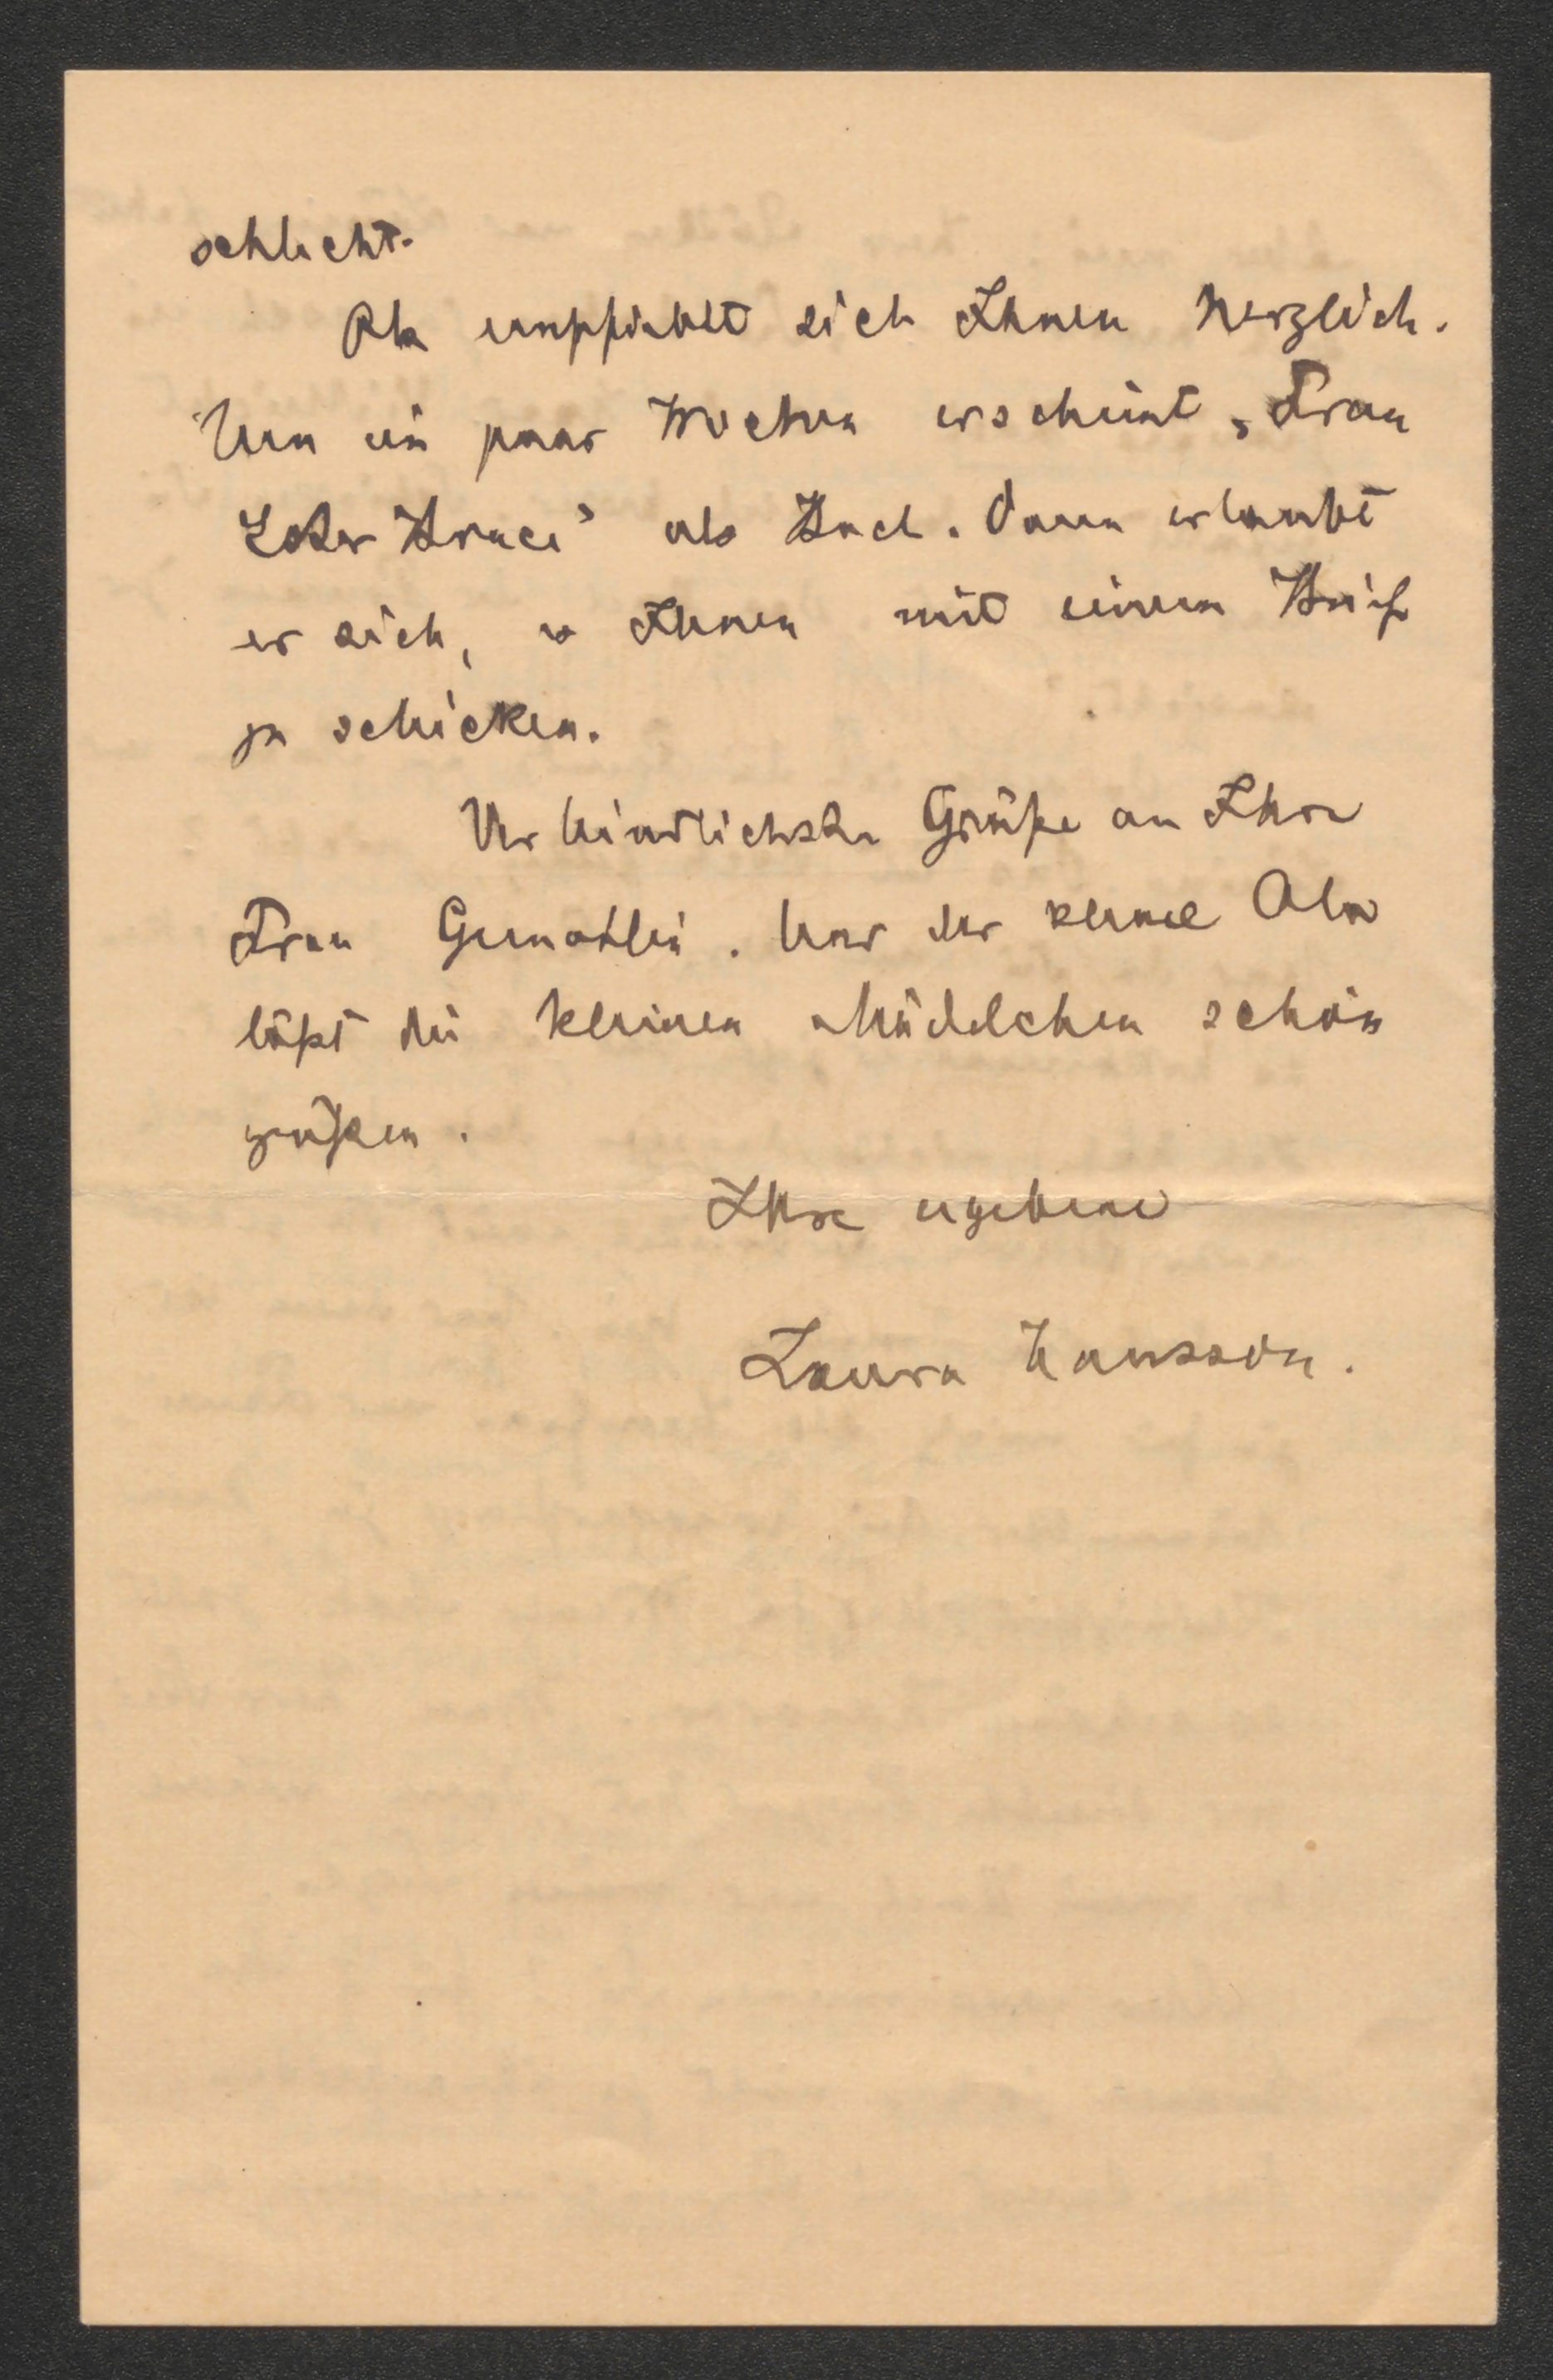 schlecht.
Ola empfiehlt sich Ihnen herzlich.
Um ein paar Wochen erscheint „Frau
Ester Bruce" als Buch. Dann erlaubt
er sich, es Ihnen mit einem Brief
zu schicken.
Verbindlichste Grüße an Ihre
Frau Gemahlin. Und der kleine Ola
läßt die kleinen Mädelchen schön
grüßen.
Ihre ergebene
Laura Hansson.